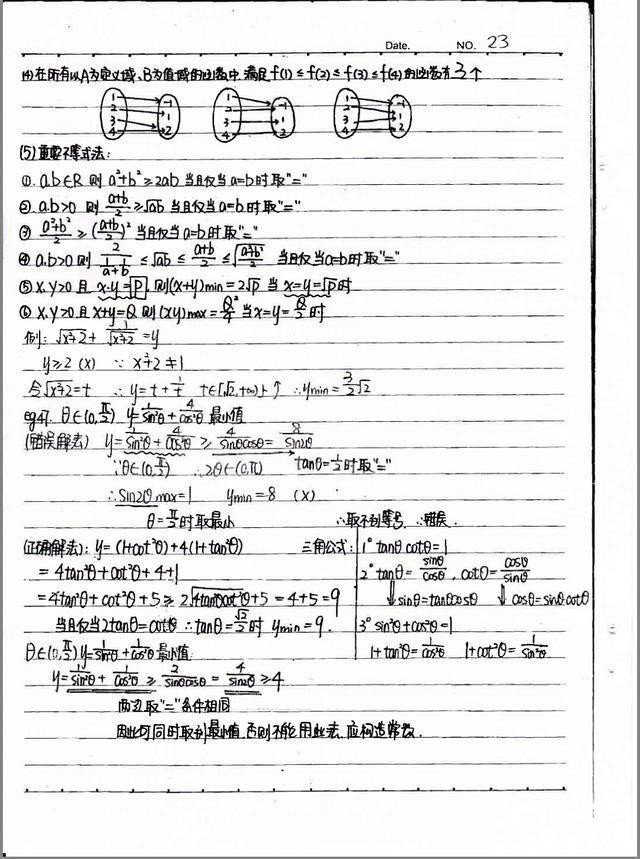 Date. NO. 23
(4) 在所有以A为定义域、B为值域的函数中 满足 f(1) ≤ f(2) ≤ f(3) ≤ f(4) 的函数有3个
1 2 3 4 -1 1 2
1 2 3 4 -1 1 2
1 2 3 4 -1 1 2
(5) 重要不等式法:
①. a.b∈R 则 a²+b² ≥ 2ab 当且仅当 a=b时 取"="
②. a.b>0 则 (a+b)/2 ≥ √ab 当且仅当 a=b时 取"="
③ (a²+b²)/2 ≥ ((a+b)/2)² 当且仅当 a=b时 取"="
④ a.b>0 则 2/(1/a+1/b) ≤ √ab ≤ (a+b)/2 ≤ √((a²+b²)/2) 当且仅当 a=b时 取"="
⑤ X,Y>0 且 x·y=P. 则(x+y)min = 2√P 当 x=y=√P时
⑥ X,Y>0. 且 x+y=Q 则 (xy)max = Q²/4 当 x=y=Q/2时
例: √(x²+2) + 1/√(x²+2) = y
y≥2 (X) ∵ x²+2≠1
令√(x²+2)=t ∴ y=t+1/t t∈[√2,+∞)上↑ ∴ymin=3/2√2
eg47. θ∈(0,π/2) y=1/sin²θ+4/cos²θ 最小值
(错误解法) y=1/sin²θ+4/cos²θ ≥ 4/sinθcosθ = 8/sin2θ
∵θ∈(0,π/2) ∴2θ∈(0,π) tanθ=1/2时取"="
∴sin2θmax=1 ymin=8 (X)
θ=π/2时取最小 ∴取不到等号 ∴错误.
(正确解法): y=(1+cot²θ)+4(1+tan²θ)
=4tan²θ+cot²θ+4+1
=4tan²θ+cot²θ+5 ≥ 2√(4tan²θcot²θ)+5=4+5=9
当且仅当2tanθ=cotθ ∴tanθ=√2/2时 ymin=9.
三角公式: 1° tanθ cotθ=1
2° tanθ=sinθ/cosθ, cotθ=cosθ/sinθ
⇓sinθ=tanθcosθ ⇓cosθ=sinθcotθ
3° sin²θ+cos²θ=1
1+tan²θ=1/cos²θ 1+cot²θ=1/sin²θ
θ∈(0,π/2) y=1/sin²θ+1/cos²θ 最小值.
y=1/sin²θ+1/cos²θ ≥ 2/sinθcosθ = 4/sin2θ ≥4
两边取"="条件相同
因此可同时取到最小值. 否则不能用此法. 应构造常数.